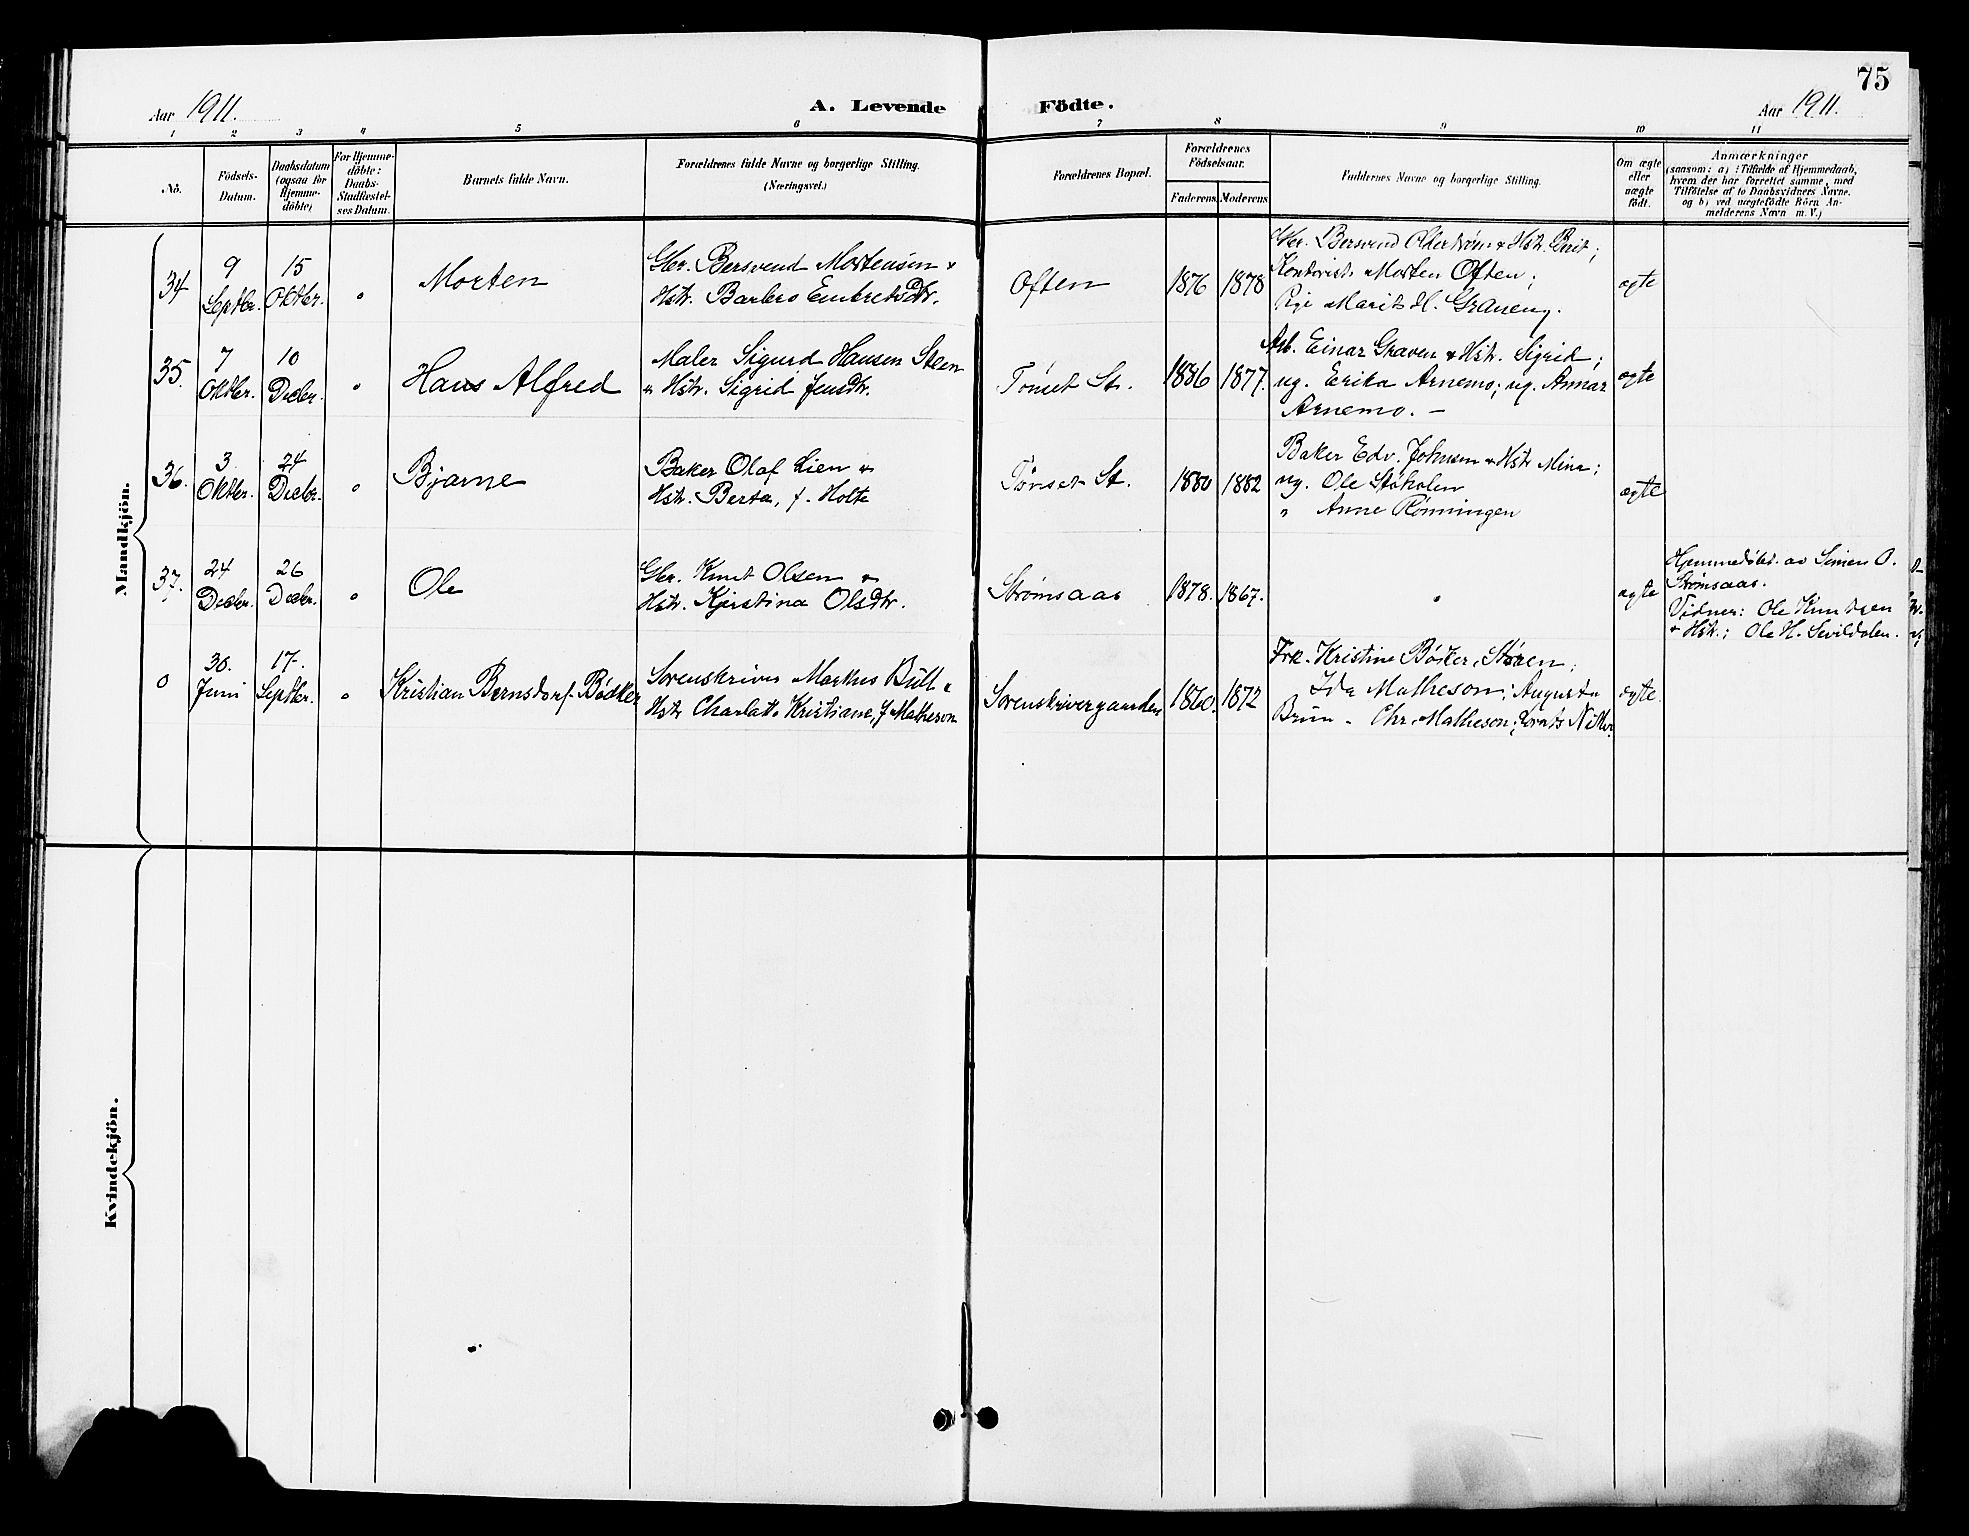 75
Aar 1911.
A. Levende Födte.
Aar 1911.
1 2 3 4 5 6 7 8 9 10 11
No.
Födsels-
Datum.
Daabsdatum
(ogsaa for
Hjemme-
döbte)
For Hjemme-
döbte:
Daabs-
Stadfæstel-
ses Datum.
Barnets fulde Navn.
Forældrenes fulde Navne og borgerlige Stilling.
(Næringsvei.)
Forældrenes Bopæl.
Forældrenes
Födselsaar.
Faderens Moderens
Faddernes Navne og borgerlige Stilling.
Om ægte
eller
uægte
født.
Anmærkninger
(saasom: a) i Tilfælde af Hjemmedaab,
hvem der har forrettet samme, med
Tilföielse af to Daabsvidners Navne.
og b) ved uægtefödte Börn An-
melderens Navn m. V.)
Mandkjön.
34
9
Septbr.
15
Oktbr.
"
Morten
Gbr. Bersvend Mortensen &
Hstr. Barbro Embretsdtr.
Often
1876 1878
Gbr. Bersvend Oterstrøm & Hstr. Berit;
Kontorist Morten Often;
Pige Marit H. Graneng.
ægte
35.
7
Oktbr.
10
Decbr.
"
Hans Alfred
Maler Sigurd Hansen Steen
& Hstr. Sigrid Jensdtr.
Tønset St.
1886 1877.
Arb. Einar Graven & Hstr. Sigrid;
ug. Erika Arnemo; ug. Annar
Arnemo. –
ægte
36.
3
Oktbr.
24
Decbr.
"
Bjarne
Baker Olaf Lien &
Hstr. Berta, f. Holte
Tønset St.
1880 1882
Baker Edv. Johnsen & Hstr Mina;
ug. Ole Støholen
" Anne Rønningen
ægte
37.
24
Decbr.
26
Decbr.
"
Ole
Gbr. Knut Olsen &
Hstr. Kjerstina Olsdtr.
Strømsaas
1878. 1867.
"
ægte
Hjemmedøbt av Simen O.
Strømsaas.
Vidner: Ole Knudsen
& Hstr.; Ole H. Sivildalen.
0
30.
Juni
17.
Septbr.
"
Kristian Bernsdorf Bødker
Sorenskriver Markus Bull &
Hstr Charlotte Kristiane, f Matheson
Sorenskrivergaarden
1860. 1872
Frk. Kristine Bøcker, Støren;
Ida Matheson; Augusta
Brun – Chr. Matheson;
ægte.
Kvindekjön.